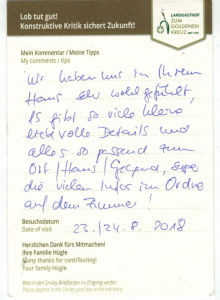 Lob tut gut!
Konstruktive Kritik sichert Zukunft!
LANDGASTHOF
ZUM
GOLDENEN
KREUZ
Mein Kommentar / Meine Tipps
My comments / tips
Wir haben uns in Ihrem
Haus sehr wohl gefühlt,
Es gibt so viele kleine
liebevolle Details und
alles so passend zum
Ort/Haus/Gegend, super
die vielen Infos im Ordner
auf dem Zimmer!
Besuchsdatum
Date of visit
23./24. 8. 2018
Herzlichen Dank fürs Mitmachen!
Ihre Familie Hügle
Many thanks for contributing!
Your family Hügle
Bitte in den Smiley-Briefkasten im Eingang werfen.
Please deposit in the Smiley post box in the entrance.